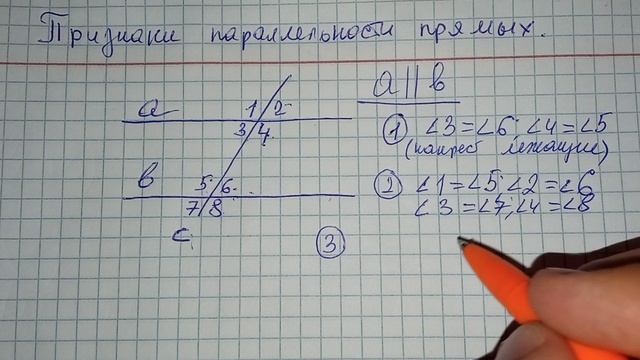 Признаки параллельности прямых.
a || b
a
1 2
3 4
b
5 6
7 8
c
① ∠3=∠6; ∠4=∠5
(накрест лежащие)
② ∠1=∠5; ∠2=∠6
∠3=∠7; ∠4=∠8
③